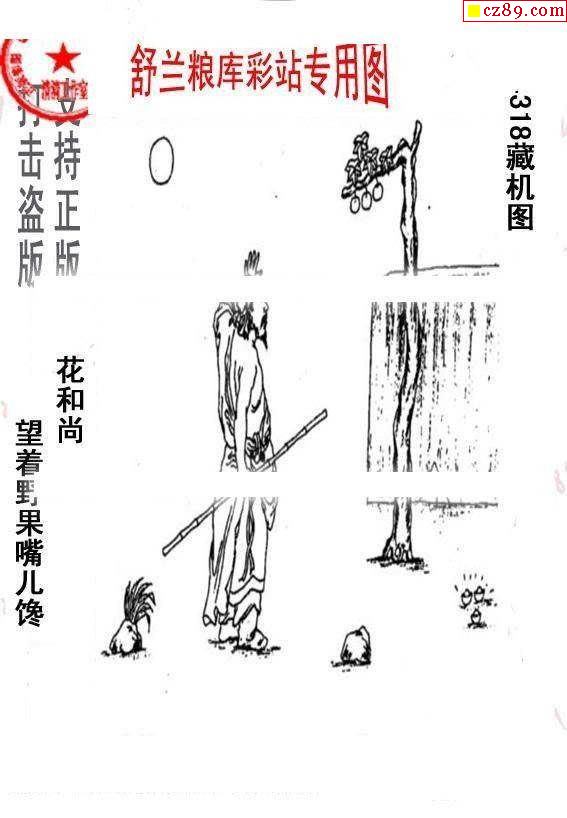 cz89.com
舒兰粮库彩站专用图
318藏机图
支持正版
打击盗版
花和尚
望着野果嘴儿馋